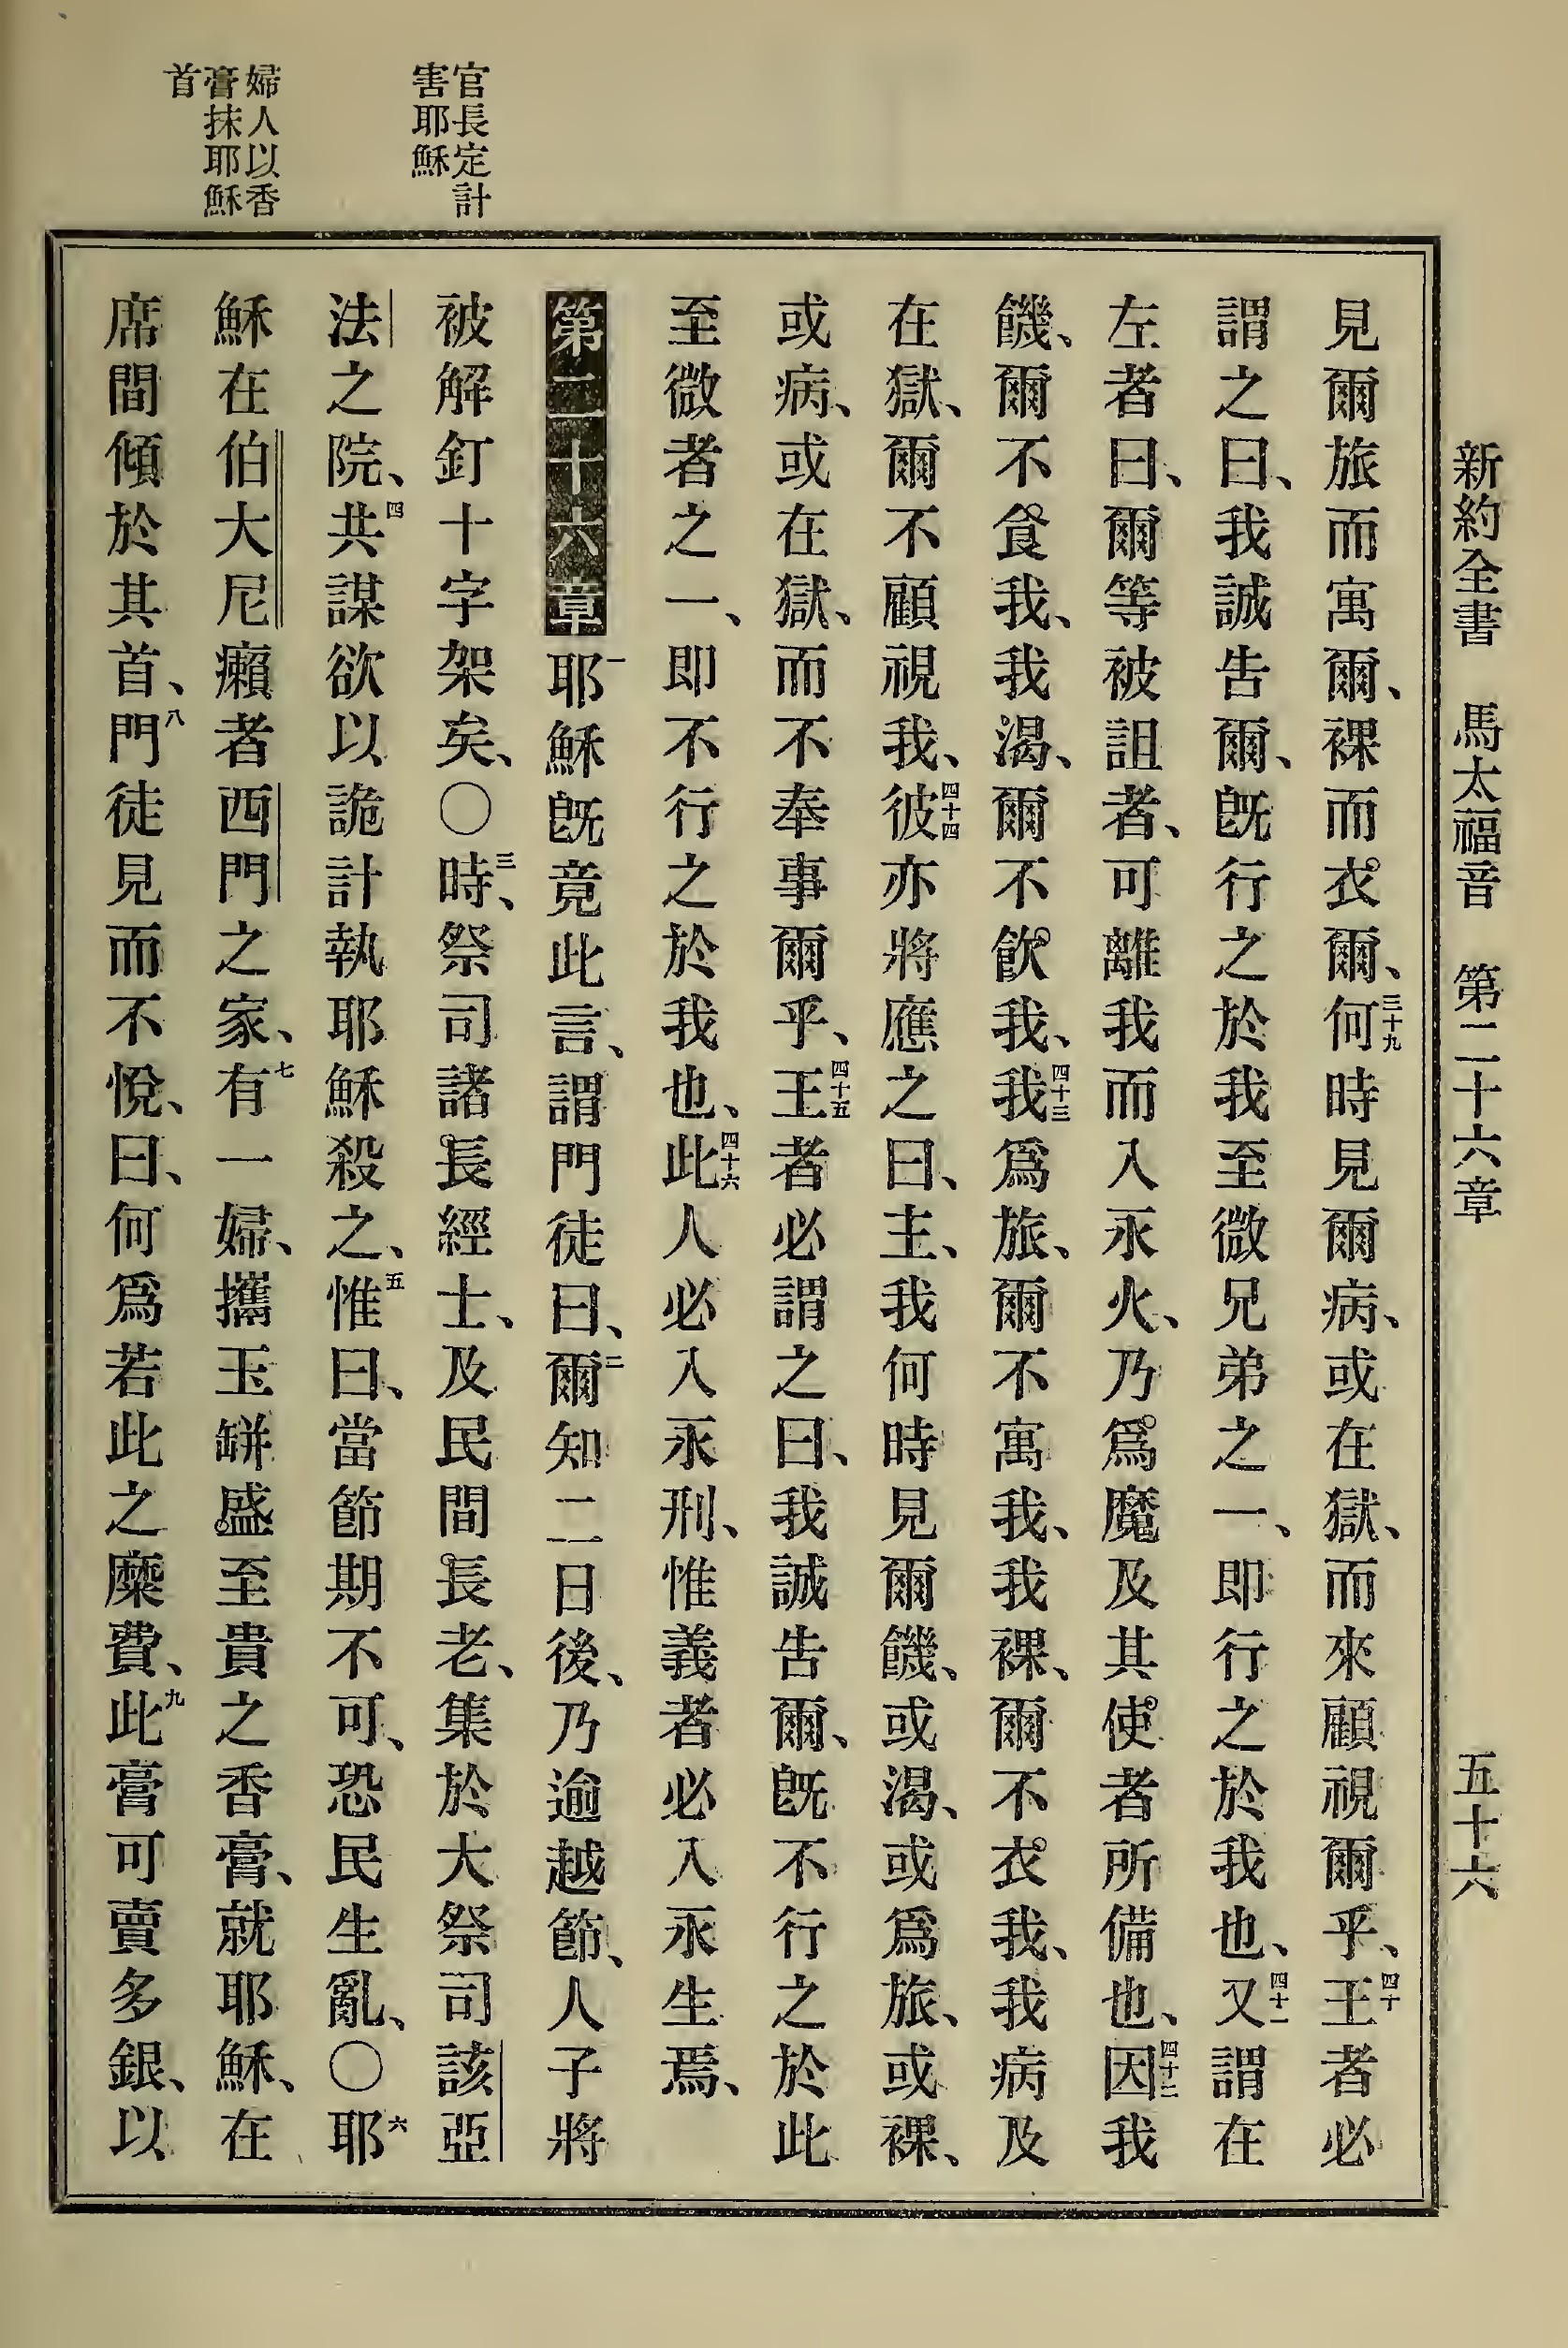 新約全書 馬太福音 第二十六章 五十六
見爾旅而寓爾、裸而衣爾、三十九何時見爾病、或在獄、而來顧視爾乎、四十王者必
謂之曰、我誠告爾、旣行之於我至微兄弟之一、即行之於我也、四十一又謂在
左者曰、爾等被詛者、可離我而入永火、乃爲魔及其使者所備也、四十二因我
饑、爾不食我、我渴、爾不飲我、四十三我爲旅、爾不寓我、我裸、爾不衣我、我病及
在獄、爾不顧視我、四十四彼亦將應之曰、主、我何時見爾饑、或渴、或爲旅、或裸、
或病、或在獄、而不奉事爾乎、四十五王者必謂之曰、我誠告爾、旣不行之於此
至微者之一、即不行之於我也、四十六此人必入永刑、惟義者必入永生焉、
第二十六章 一耶穌旣竟此言、謂門徒曰、二爾知二日後、乃逾越節、人子將
被解釘十字架矣、〇三時、祭司諸長經士、及民間長老、集於大祭司該亞
法之院、四共謀欲以詭計執耶穌殺之、五惟曰、當節期不可、恐民生亂、〇六耶
穌在伯大尼癩者西門之家、七有一婦、攜玉缾盛至貴之香膏、就耶穌、在
席間傾於其首、八門徒見而不悅、曰、何爲若此之糜費、九此膏可賣多銀、以
官長定計
害耶穌
婦人以香
膏抹耶穌
首